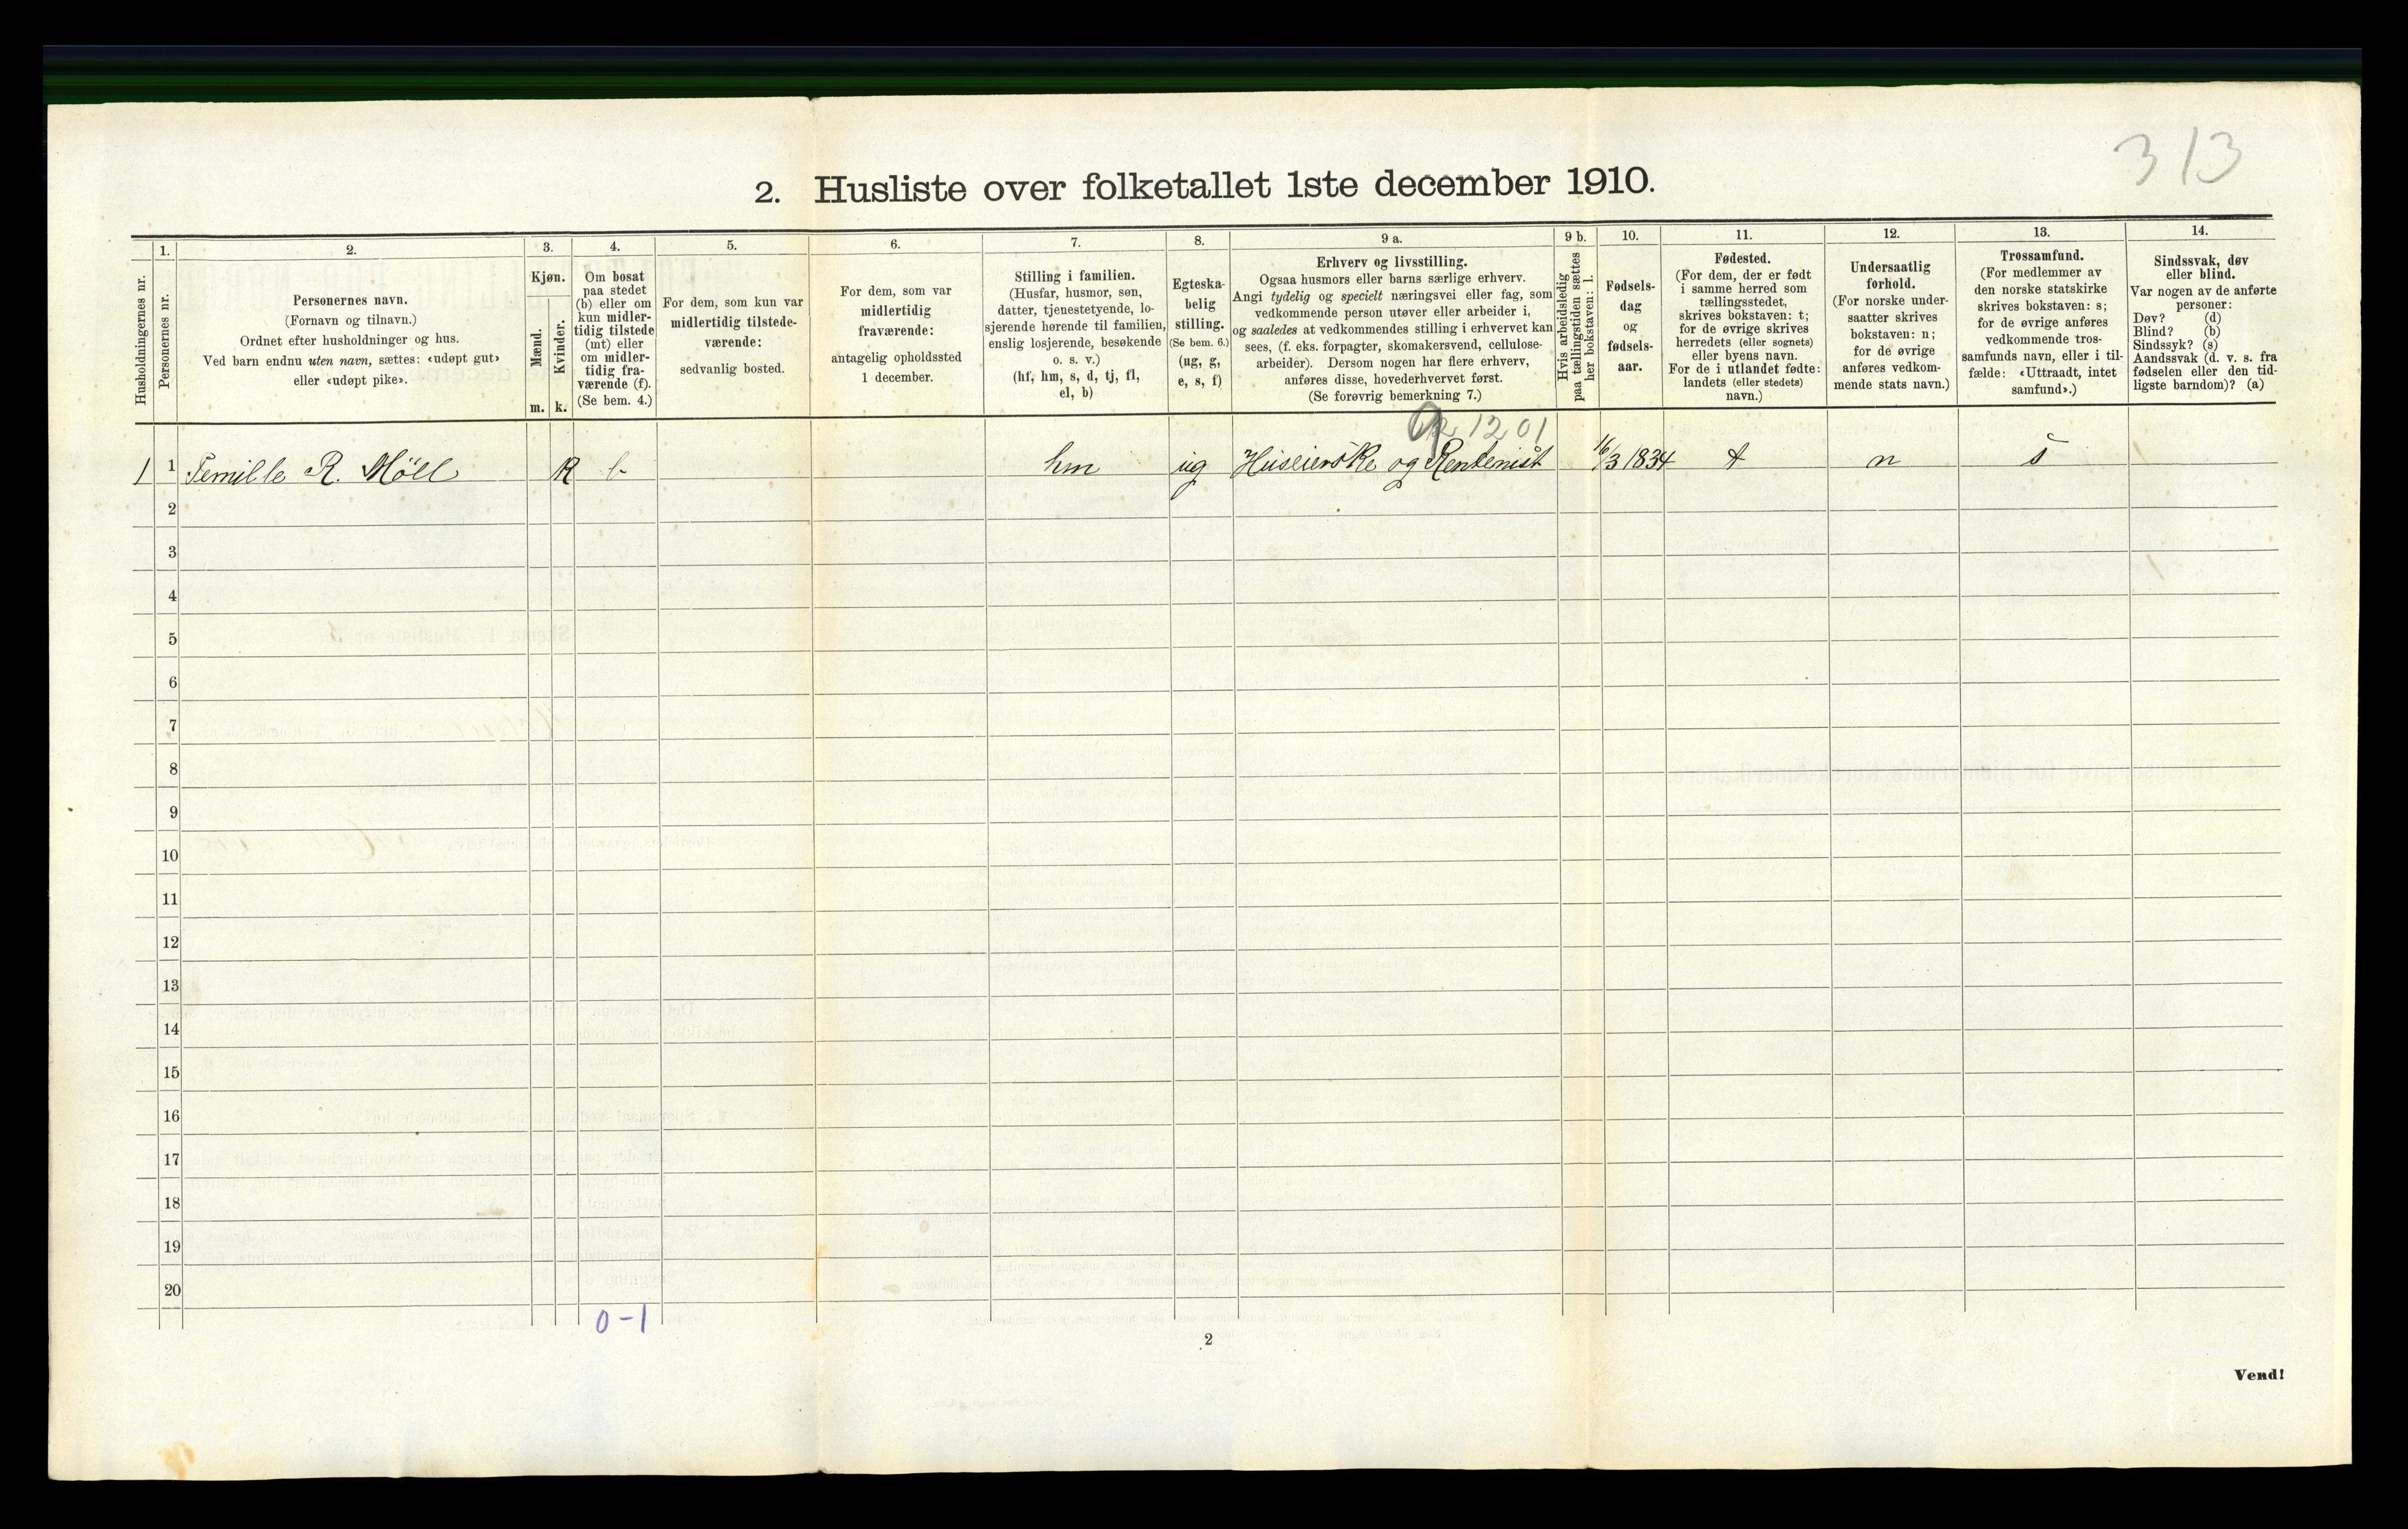 313
2. Husliste over folketallet 1ste december 1910.
Husholdningernes nr.
1.
Personernes nr.
2.
Personernes navn.
(Fornavn og tilnavn.)
Ordnet efter husholdninger og hus.
Ved barn endnu uten navn, sættes: «udøpt gut»
eller «udøpt pike».
3.
Kjøn.
Mænd.
Kvinder.
m. k.
4.
Om bosat
paa stedet
(b) eller om
kun midler-
tidig tilstede
(mt) eller
om midler-
tidig fra-
værende (f).
(Se bem. 4.)
5.
For dem, som kun var
midlertidig tilstede-
værende:
sedvanlig bosted.
6.
For dem, som var
midlertidig
fraværende:
antagelig opholdssted
1 december.
7.
Stilling i familien.
(Husfar, husmor, søn,
datter, tjenestetyende, lo-
sjerende hørende til familien,
enslig losjerende, besøkende
o. s. v.)
(hf, hm, s, d, tj, fl,
el, b)
8.
Egteska-
belig
stilling.
(Se bem. 6.)
(ug, g,
e, s, f)
9 a.
Erhverv og livsstilling.
Ogsaa husmors eller barns særlige erhverv.
Angi tydelig og specielt næringsvei eller fag, som
vedkommende person utøver eller arbeider i,
og saaledes at vedkommendes stilling i erhvervet kan
sees, (f. eks. forpagter, skomakersvend, cellulose-
arbeider). Dersom nogen har flere erhverv,
anføres disse, hovederhvervet først.
(Se forøvrig bemerkning 7.)
9 b.
Hvis arbeidsledig
paa tællingstiden sættes
her bokstaven: l.
10.
Fødsels-
dag
og
fødsels-
aar.
11.
Fødested.
(For dem, der er født
i samme herred som
tællingsstedet,
skrives bokstaven: t;
for de øvrige skrives
herredets (eller sognets)
eller byens navn.
For de i utlandet fødte:
landets (eller stedets)
navn.)
12.
Undersaatlig
forhold.
(For norske under-
saatter skrives
bokstaven: n;
for de øvrige
anføres vedkom-
mende stats navn.)
13.
Trossamfund.
(For medlemmer av
den norske statskirke
skrives bokstaven: s;
for de øvrige anføres
vedkommende tros-
samfunds navn, eller i til-
fælde: «Uttraadt, intet
samfund».)
14.
Sindssvak, døv
eller blind.
Var nogen av de anførte
personer:
Døv? (d)
Blind? (b)
Sindssyk? (s)
Aandssvak (d. v. s. fra
fødselen eller den tid-
ligste barndom)? (a)
1201
1 1 Temille R. Möll K b hm ug Huseierske og Rentenist 16/3 1834 t n s
2
3
4
5
6
7
8
9
10
11
12
13
14
15
16
17
18
19
20
0-1
2
Vend!